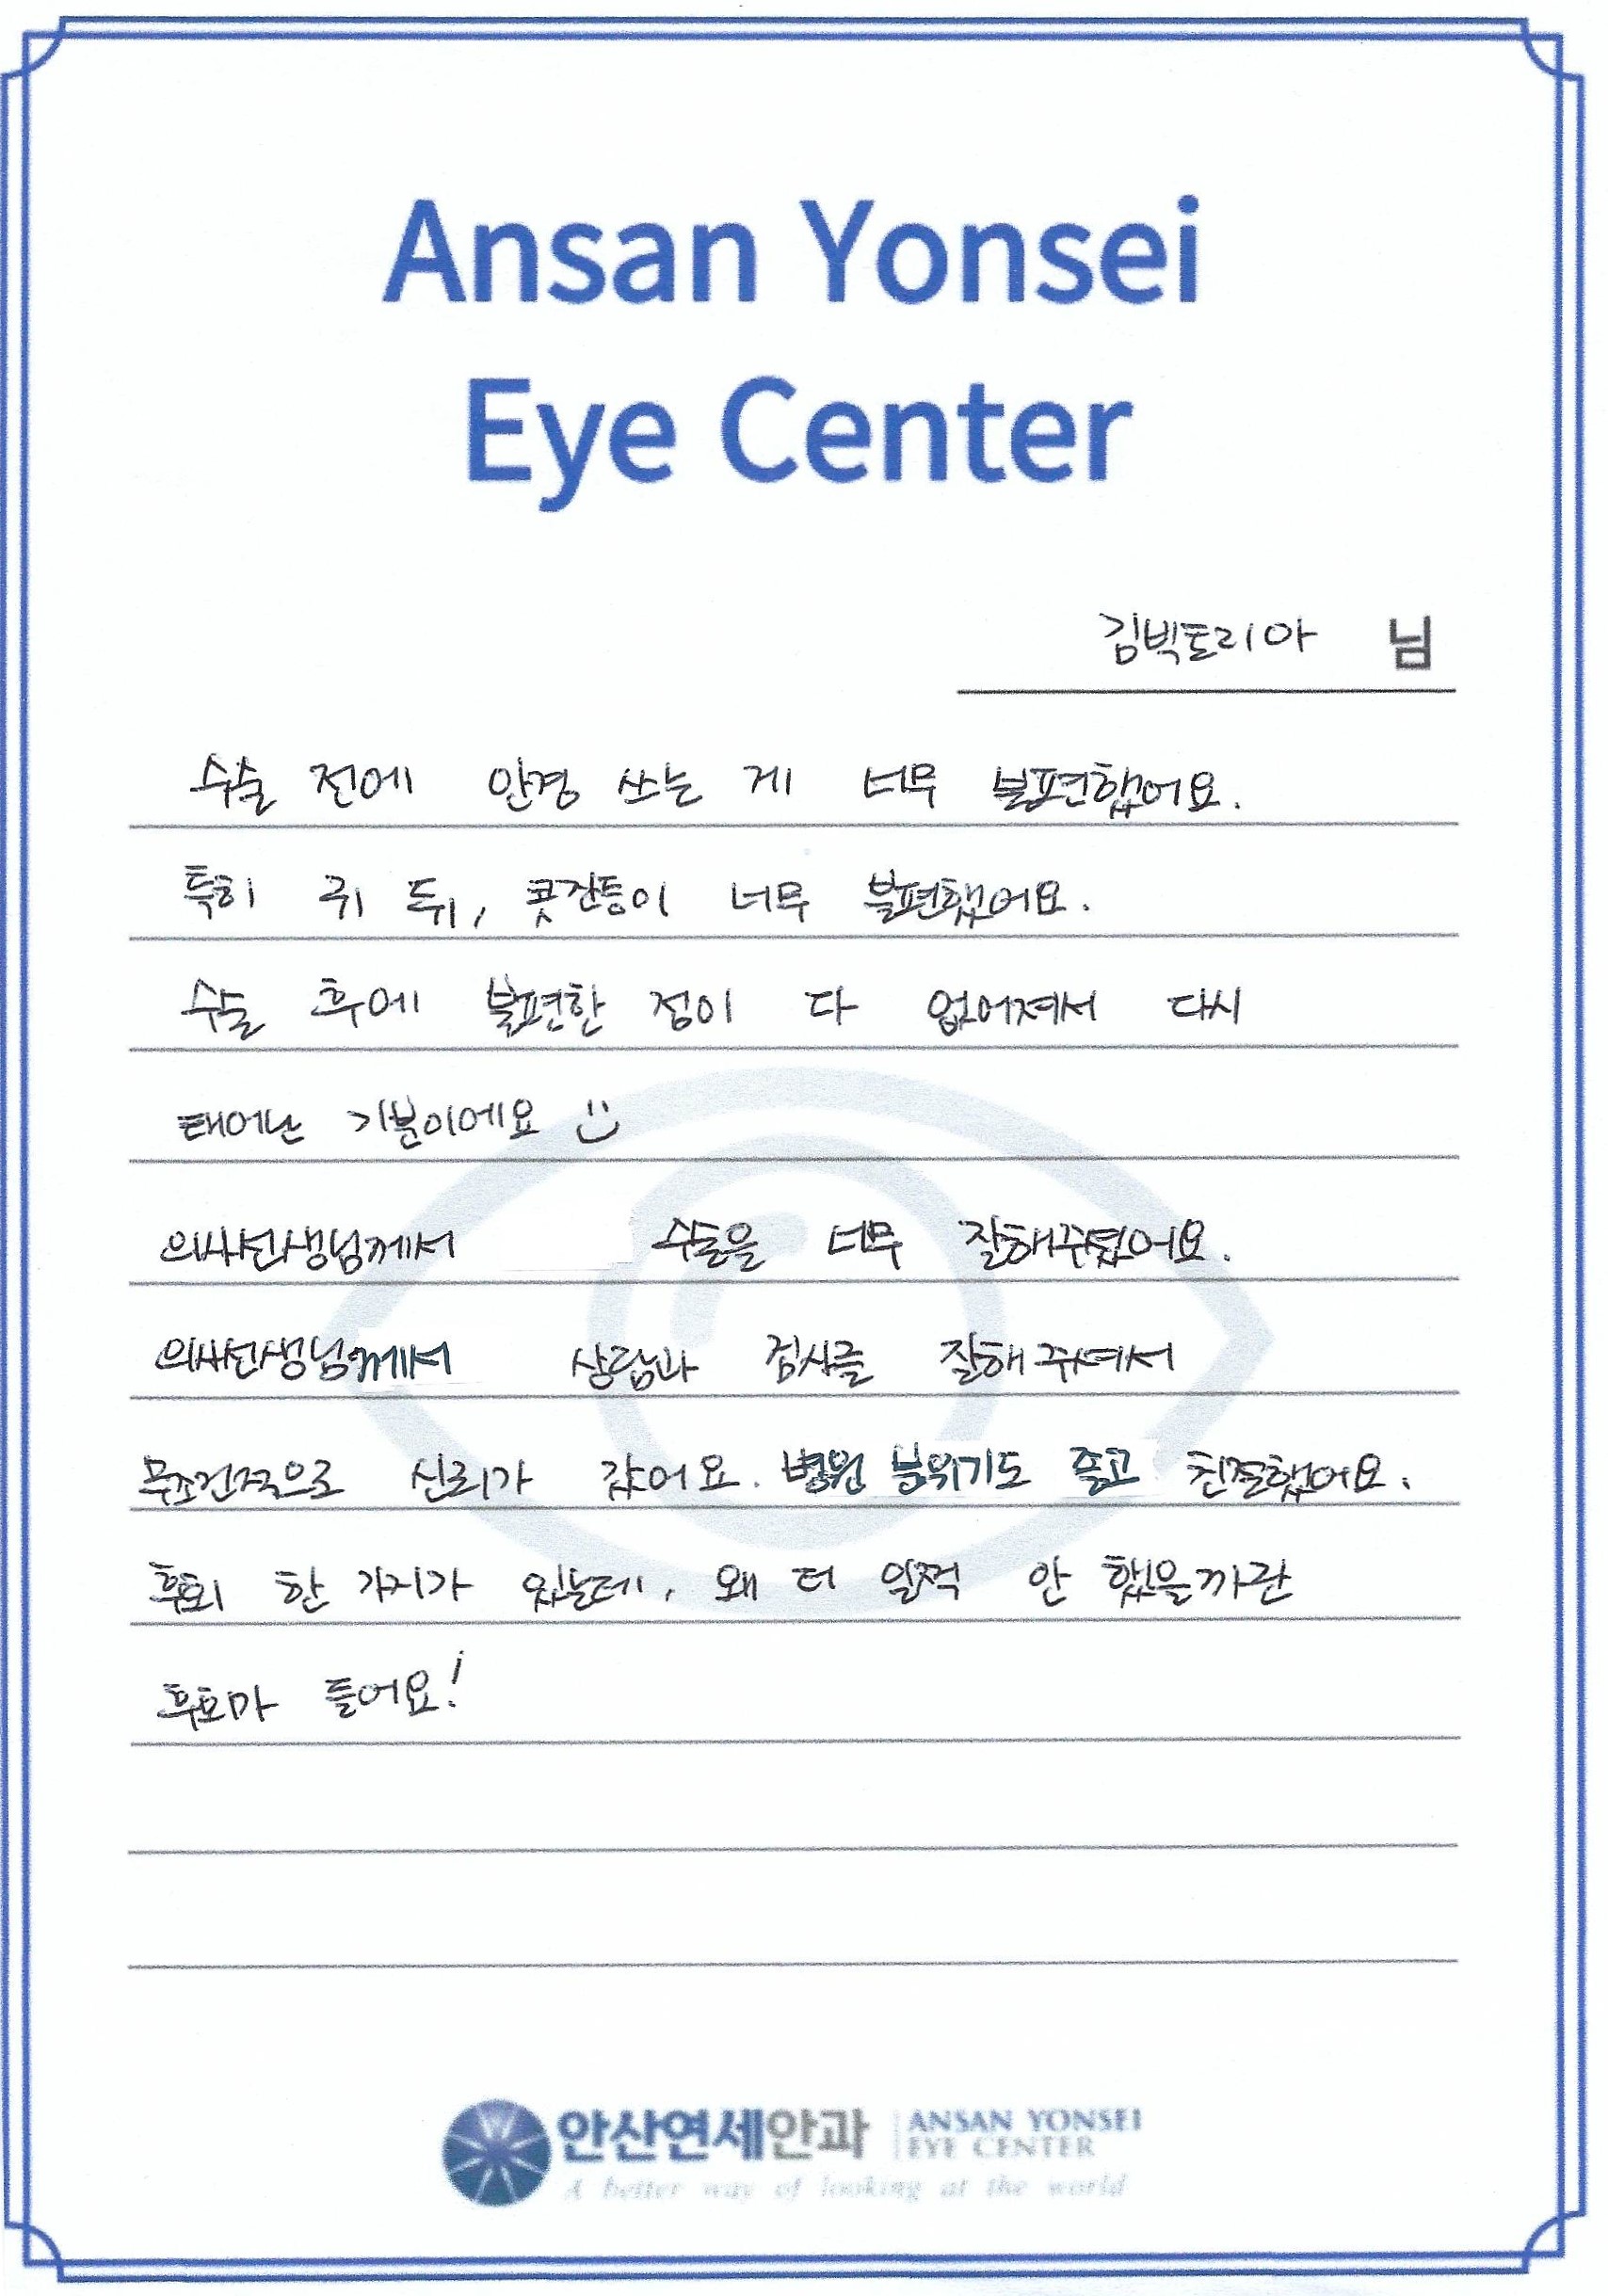 Ansan Yonsei
Eye Center
김빅토리아 님
수술 전에 안경 쓰는 게 너무 불편했어요.
특히 귀 뒤, 콧잔등이 너무 불편했어요.
수술 후에 불편한 점이 다 없어져서 다시
태어난 기분이에요
의사선생님께서 수술을 너무 잘해주셨어요.
의사선생님께서 상담과 검사를 잘해주셔서
무조건적으로 신뢰가 갔어요. 병원 분위기도 좋고 친절했어요.
후회 한 가지가 있는데, 왜 더 일찍 안 했을까란
후회만 들어요!
안산연세안과 ANSAN YONSEI
EYE CENTER
A better way of looking at the world